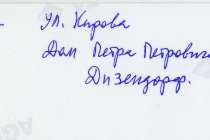 ул. Кирова
Дом Петра Петровича
Дизендорф.